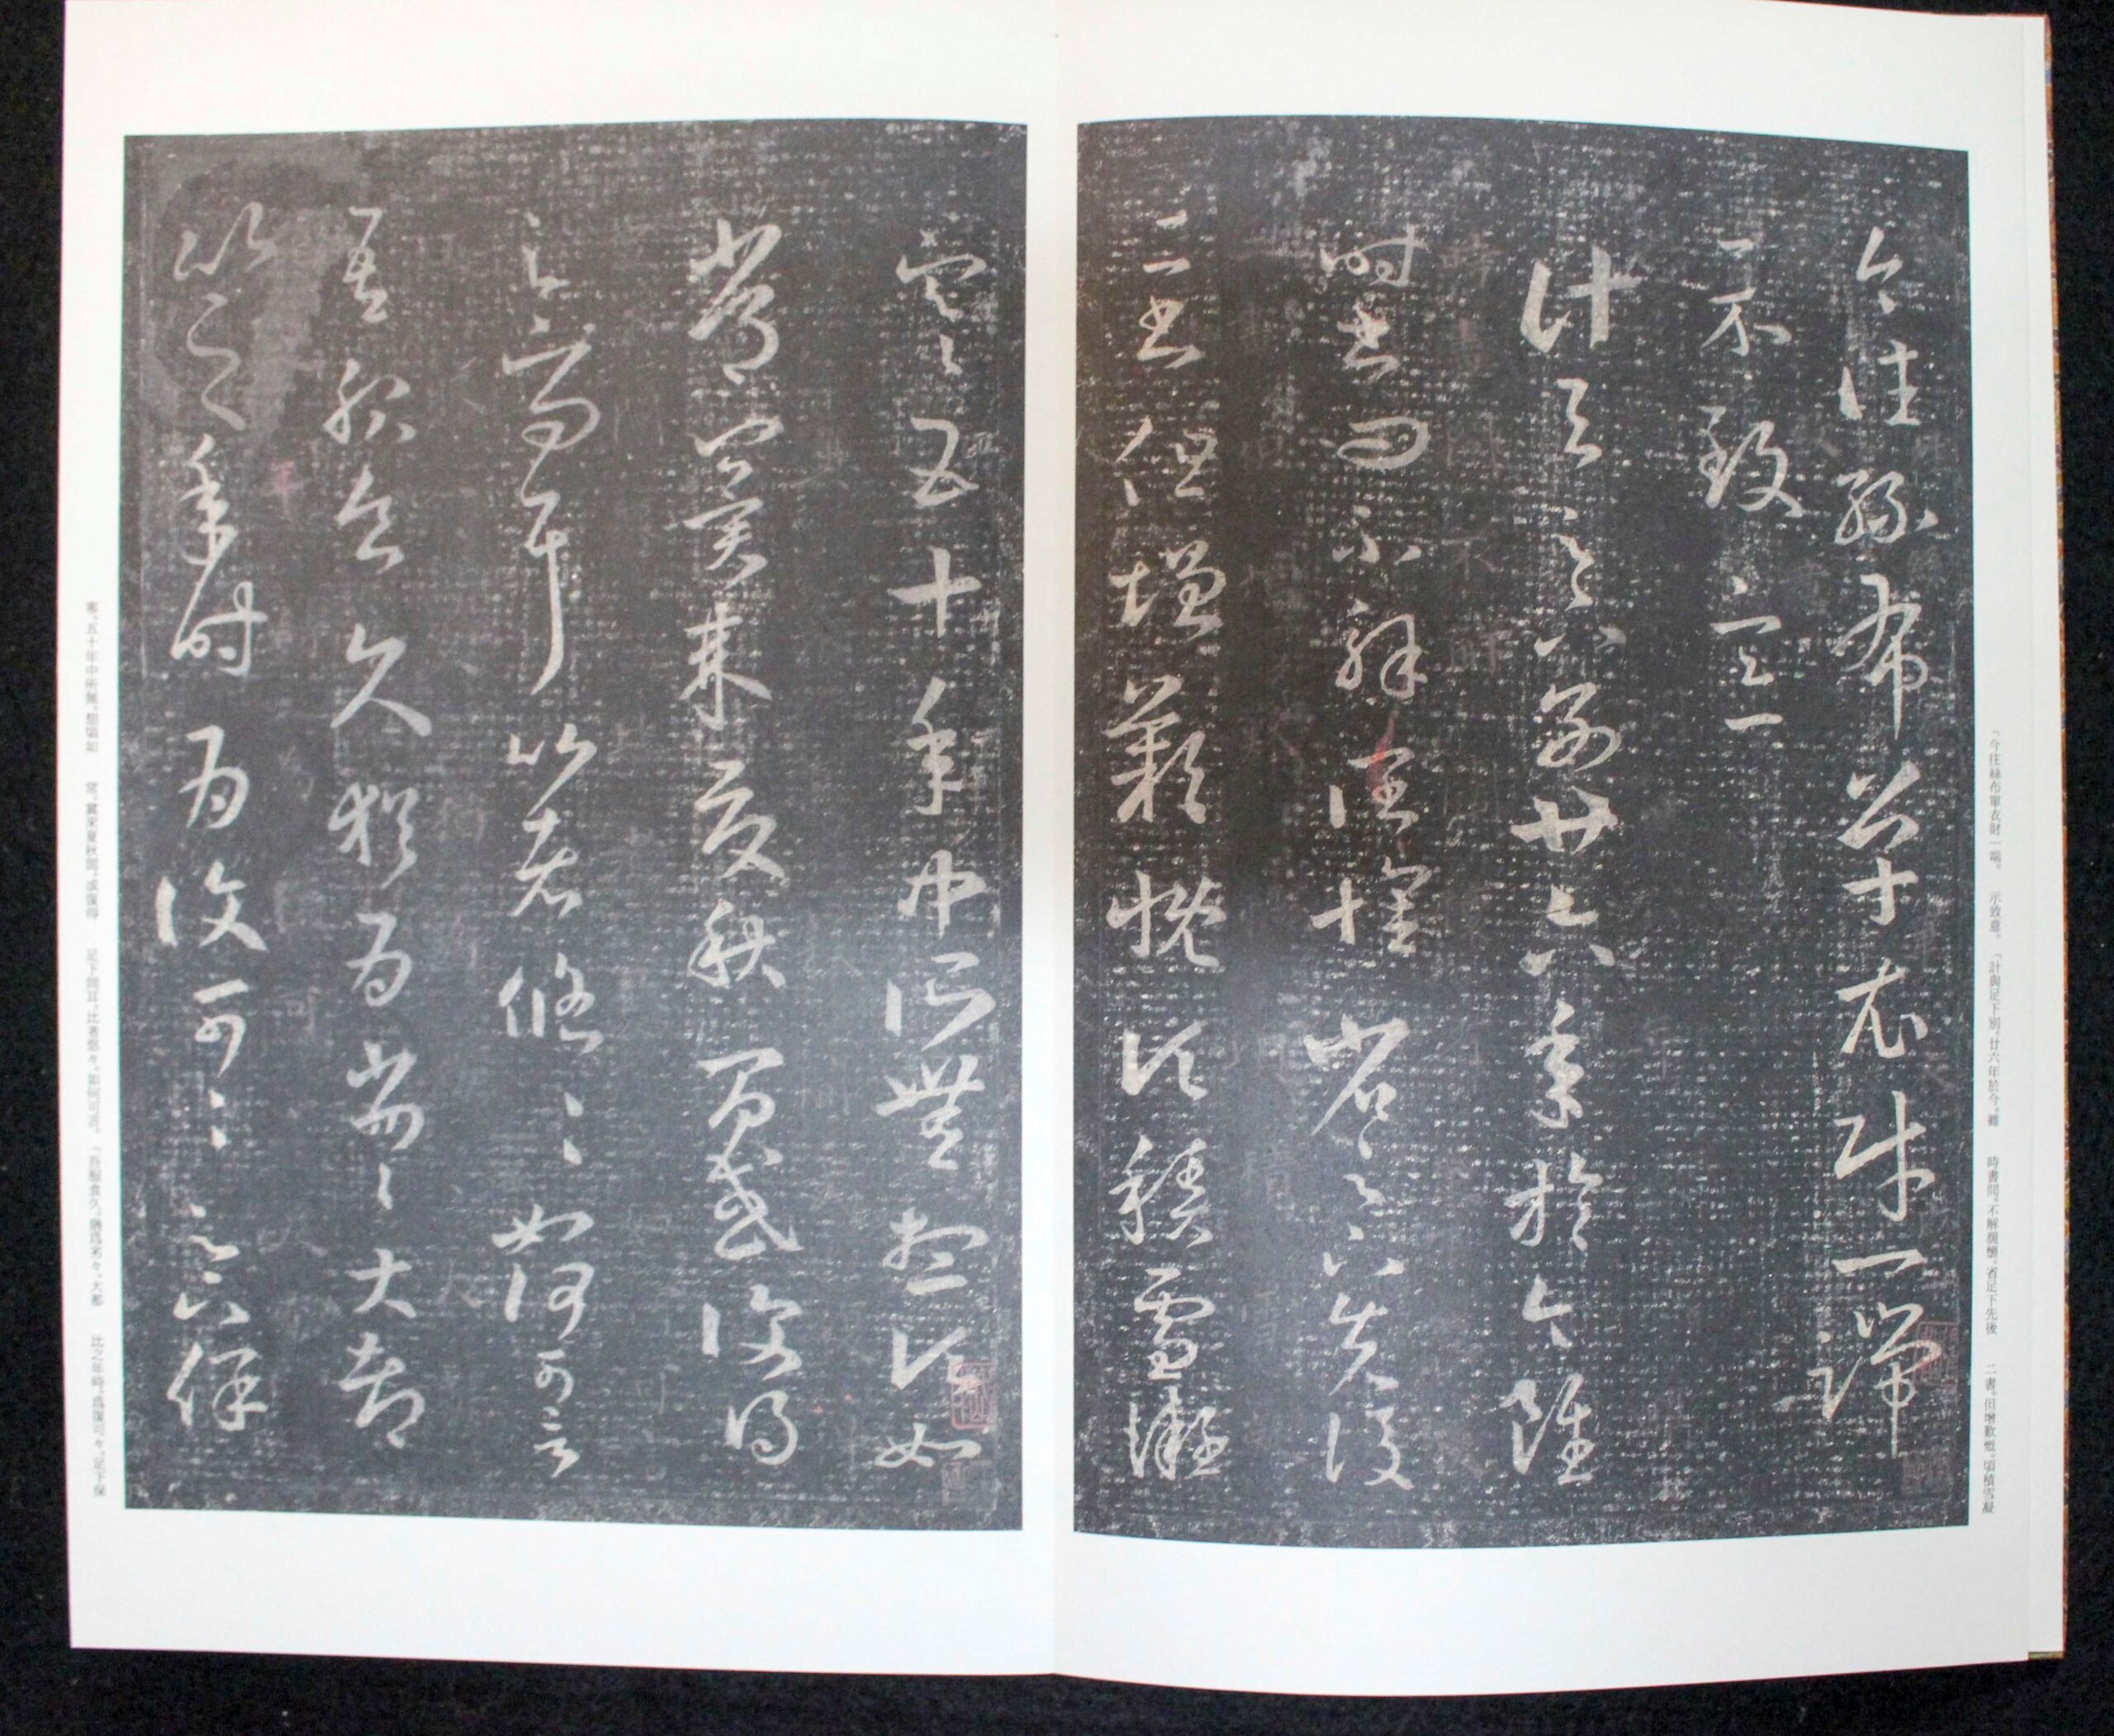 今往絲布單衣財一端
示致意
計與足下別廿六年於今雖
時書問不解闊懷省足下先後
二書但增歎慨頃積雪凝
「今往絲布單衣財一端。 示致意。 「計與足下別、廿六年於今。雖 時書問、不解闊懷。省足下先後 二書、但增歎慨。頃積雪凝
寒五十年中所無想頃如
常冀來夏秋間或復得
足下問耳比者悠々如何可言
吾服食久猶為劣々大都
比之年時為復可々足下保
寒、五十年中所無。想頃如 常。冀來夏秋間、或復得 足下問耳。比者悠々、如何可言。 「吾服食久、猶爲劣々。大都 比之年時、爲復可々。足下保